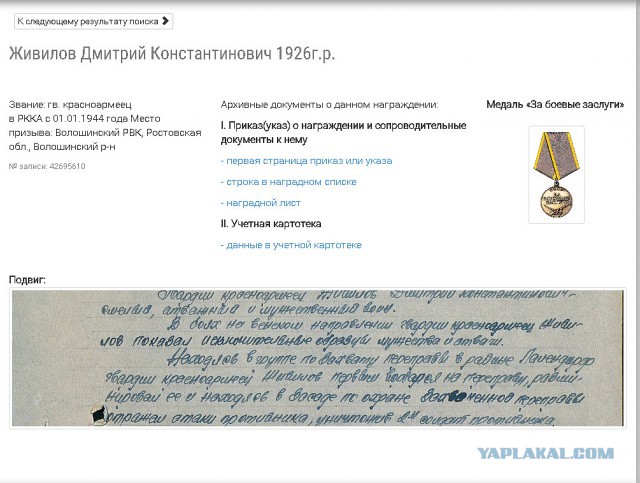 К следующему результату поиска
Живилов Дмитрий Константинович 1926г.р.
Звание: гв. красноармеец
в РККА с 01.01.1944 года Место
призыва: Волошинский РВК, Ростовская
обл., Волошинский р-н
№ записи: 42695610
Архивные документы о данном награждении:
I. Приказ(указ) о награждении и сопроводительные
документы к нему
- первая страница приказ или указа
- строка в наградном списке
- наградной лист
II. Учетная картотека
- данные в учетной картотеке
Медаль «За боевые заслуги»
Подвиг:
Гвардии красноармеец Живилов Дмитрий Константинович-
смелый, отважный и мужественный воин.
В боях на венском направлении гвардии красноармеец Живи-
лов показал исключительные образцы мужества и отваги.
Находясь в группе по захвату переправы в районе
гвардии красноармеец Живилов первым на переправу, разми-
нировал ее и находясь в засаде по охране захваченной переправы
отражал атаки противника, уничтожив 2х солдат противника.
YAPLAKAL.COM